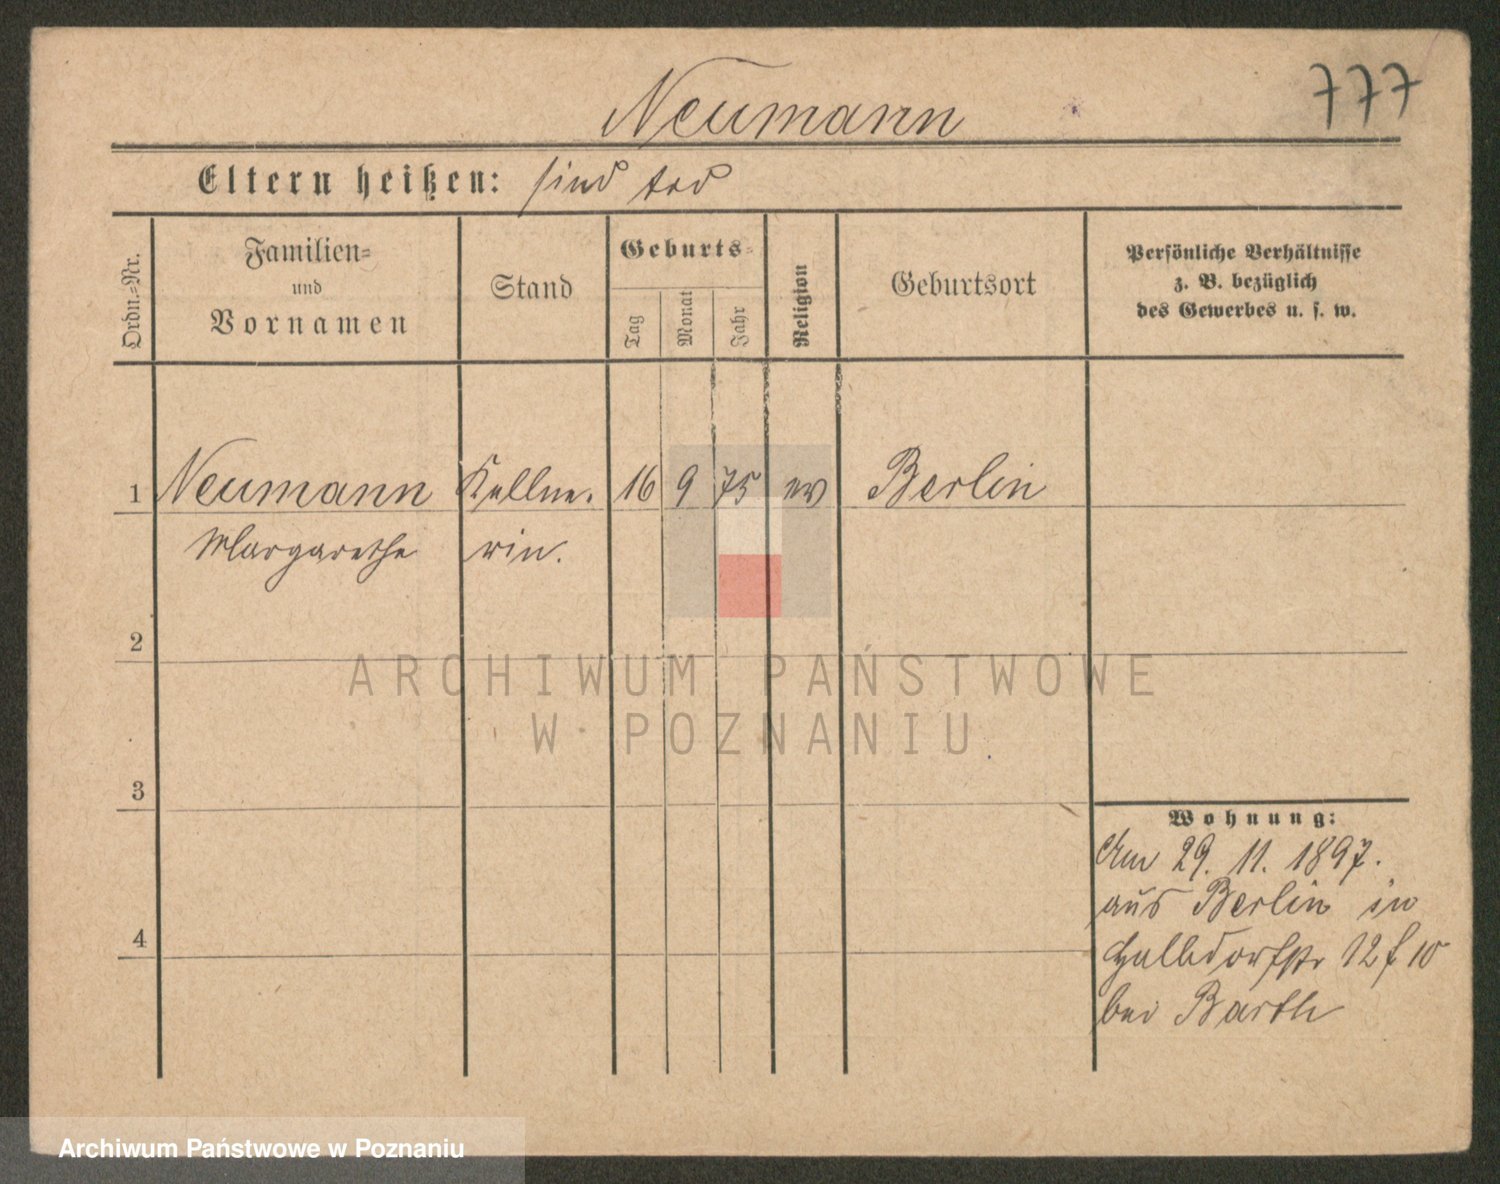 Neumann
777
Eltern heißen: sind tod
Ordn.=Nr.
Familien=
und
Vornamen
Stand
Geburts=
Tag
Monat
Jahr
Religion
Geburtsort
Persönliche Verhältnisse
z. B. bezüglich
des Gewerbes u. s. w.
1 Neumann Kellne. 16 9 75 ev Berlin
Margarethe rin.
2
ARCHIWUM PAŃSTWOWE
W POZNANIU
3
Wohnung:
Am 29. 11. 1897.
aus Berlin in
4
Halbdorfstr 12
bei Barth
Archiwum Państwowe w Poznaniu